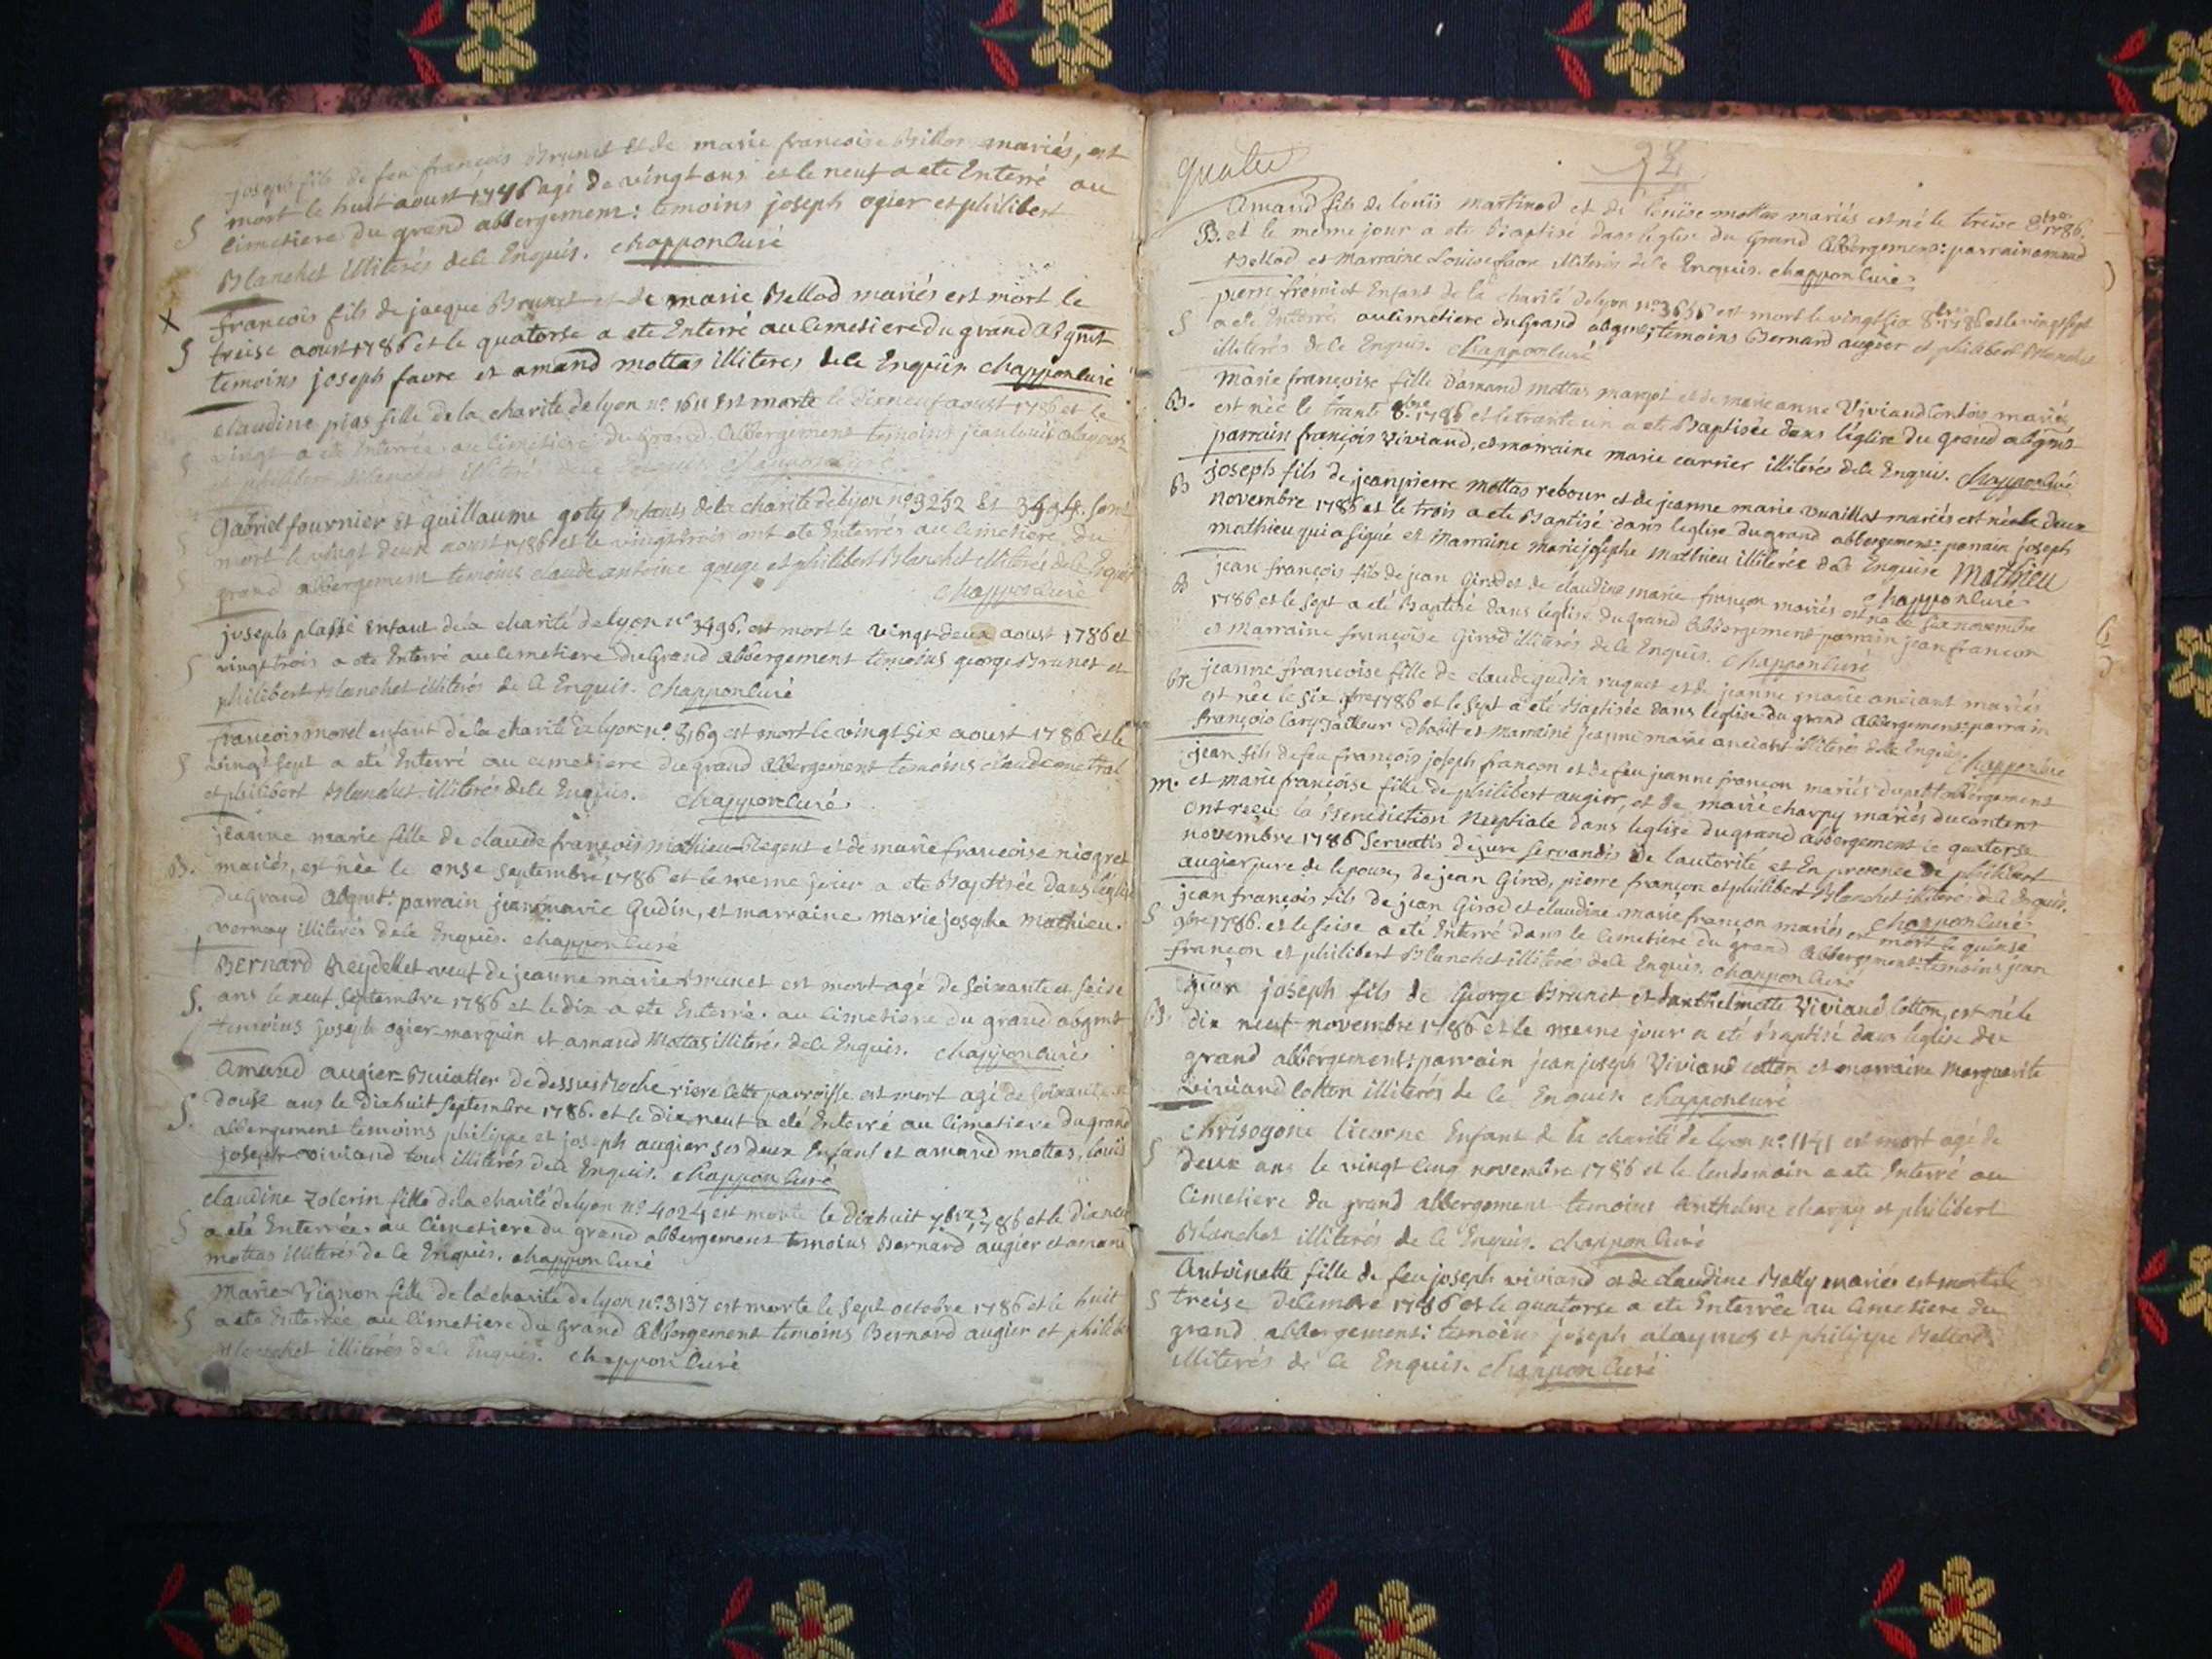 joseph fils de feu françois Brunet et de marie francoise Billon mariés, est
mort le huit aoust 1786 agé de vingt ans et le neuf a ete Enterré au
S cimetiere du grand abbergement: temoins joseph ogier et philibert
Blanchet illiterés dele Enquis. chappon curé
X francois fils de jacque Brunet et de marie Bellod mariés est mort le
S treise aoust 1786 et le quatorse a ete Enterré au cimetiere du grand abgmt
temoins joseph favre et amand mottas illiteres dele Enquis chappon curé
claudine pias fille de la charité de lyon no. 1611 est morte le dixneuf aoust 1786 et le
S vingt a ete Enterrée au cimetiere du Grand abbergement temoins jean louis
et philibert Blanchet illiterés dele Enquis chappon curé
S Gabriel fournier et guillaume goty Enfants de la charité de lyon no 3252 et 3494. sont
mort le vingt deux aoust 1786 et le vingt trois ont ete Enterrés au cimetiere du
S grand abbergement temoins claude antoine george et philibert Blanchet illiterés dele Enquis
chappon curé
joseph plassé Enfant de la charité de lyon no 3496. est mort le vingt deux aoust 1786 et
S vingt trois a ete Enterré au cimetiere du Grand abbergement temoins george Brunet et
philibert Blanchet illiterés de le Enquis. chappon curé
francois morel enfant de la charité de lyon no. 8169 est mort le vingt six aoust 1786 et le
S vingt sept a eté Enterré au cimetiere du grand abbergement temoins claude metral
et philibert Blanchet illiterés dele Enquis. chappon curé.
jeanne marie fille de claude françois mathieu-Regent et de marie francoise niogret
B. mariés, est née le onse septembre 1786 et le meme jour a ete Baptisée dans l'église
du Grand abgmt: parrain jean marie Gudin, et marraine marie josephe mathieu.
vernay illiterés dele Enquis. chappon curé
Bernard Reydellet veuf de jeanne marie Brunet est mort agé de soixante et seise
S. ans le neuf septembre 1786 et le dix a ete Enterré. au cimetiere du grand abgmt
temoins joseph ogier-marquin et amand Mottas illiterés dele Enquis. chappon curé
amand augier-Buiatier de dessus Roche riere cette parroisse est mort agé de soixante et
S. douse ans le dixhuit septembre 1786. et le dix neuf a eté Enterré au cimetiere du grand
abbergement temoins philippe et joseph augier ses deux Enfans et amand mottas, louis
joseph viviand tous illiterés dele Enquis. chappon curé
claudine zolerin fille de la charité de lyon no. 4024 est morte le dixhuit 7bre 1786 et le dix neuf
S a eté Enterrée. au cimetiere du grand abbergement temoins Bernard augier et amand
mottas illiterés de le Enquis. chappon curé
marie Vignon fille de la charité de lyon no. 3137 est morte le sept octobre 1786 et le huit
S a ete Enterrée au cimetiere du Grand abbergement temoins Bernard augier et philibert
Blanchet illiterés dele Enquis. chappon curé
quatre
92
Amand fils de louis martinod et de louise mottas mariés est né le treise 8bre 1786.
B. et le meme jour a ete Baptisé dans leglise du Grand abbergement: parrain amand
Bellod et marraine Louise favre illiterés dele Enquis. chappon curé
pierre frémiot Enfant de la charité de lyon no. 3656 est mort le vingt six 8bre 1786 et le vingt sept
S a ete Enterré au cimetiere du Grand abgmt; temoins Bernard augier et philibert Blanchet
illiterés dele Enquis. chappon curé
marie françoise fille d'amand mottas margot et de marie anne Viviand Contois mariés
B. est née le trante 8bre 1786 et le trante un a ete Baptisée dans l'église du grand abgmt
parrain françois Viviand, et marraine marie carrier illiterés dele Enquis. chappon curé
B joseph fils de jean pierre mottas rebour et de jeanne marie vuaillat mariés est né le deux
novembre 1786 et le trois a ete Baptisé dans leglise du grand abbergement: parrain joseph
mathieu qui a signé et marraine marie josephe mathieu illiterée dele Enquise Mathieu
chappon curé
B jean françois fils de jean Girod et de claudine marie françon mariés est né le six novembre
1786 et le sept a eté Baptisé dans leglise du grand abbergement parrain jean francon
et marraine françoise Girod illiterés dele Enquis. chappon curé
B jeanne francoise fille de claude gudin ruquet et de jeanne marie anciant mariés
est née le six 9bre 1786 et le sept a eté Baptisée dans leglise du grand abbergement: parrain
françois Cary Tailleur d'habit et marraine jeanne marie anciant illiterés dele Enquis. chappon curé
jean fils de feu françois joseph francon et de feu jeanne françon mariés du petit abbergement
m. et marie françoise fille de philibert augier, et de marie charpy mariés du contens
ont reçu la Benediction Nuptiale dans leglise du grand abbergement le quatorse
novembre 1786 servatis dejure servandis de lautorité et En presence de philibert
augier pere de lepouse, de jean Girod, pierre françon et philibert Blanchet illiterés dele Enquis.
chappon curé
jean françois fils de jean Girod et claudine marie francon mariés est mort le quinse
S 9bre 1786. et le seise a eté Enterré dans le cimetiere du grand abbergement: temoins jean
françon et philibert Blanchet illiterés dele Enquis. chappon curé
jean joseph fils de George Brunet et d'anthelmette Viviand Cotton, est né le
B. dix neuf novembre 1786 et le meme jour a ete Baptisé dans leglise du
grand abbergement: parrain jean joseph Viviand cotton et marraine marguerite
Viviand Cotton illiterés de le Enquis chappon curé
chrisogone licorne Enfant de la charité de lyon no. 1141 est mort agé de
S deux ans le vingt cinq novembre 1786 et le lendemain a ete Enterré au
Cimetiere du grand abbergement temoins Anthelme charpy et philibert
Blanchet illiterés de le Enquis. chappon curé
Antoinette fille de feu joseph viviand et de claudine Bally mariés est morte le
S treise decembre 1786 et le quatorse a ete Enterrée au cimetiere du
grand abbergement: temoins joseph alaymes et philippe Bellod
illiterés de le Enquis. chappon curé